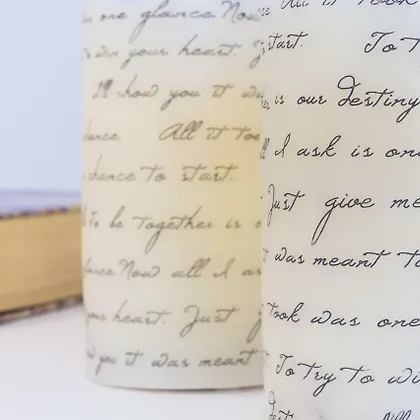 one glance Now
win your heart.
I'll show you it
All it too
chance to start.
To be together is
Now all I as
your heart. Just
you it was meant
All it took
start. To T
is our destiny
I ask is on
Just give me
was meant T
Took was one
To Try To wi